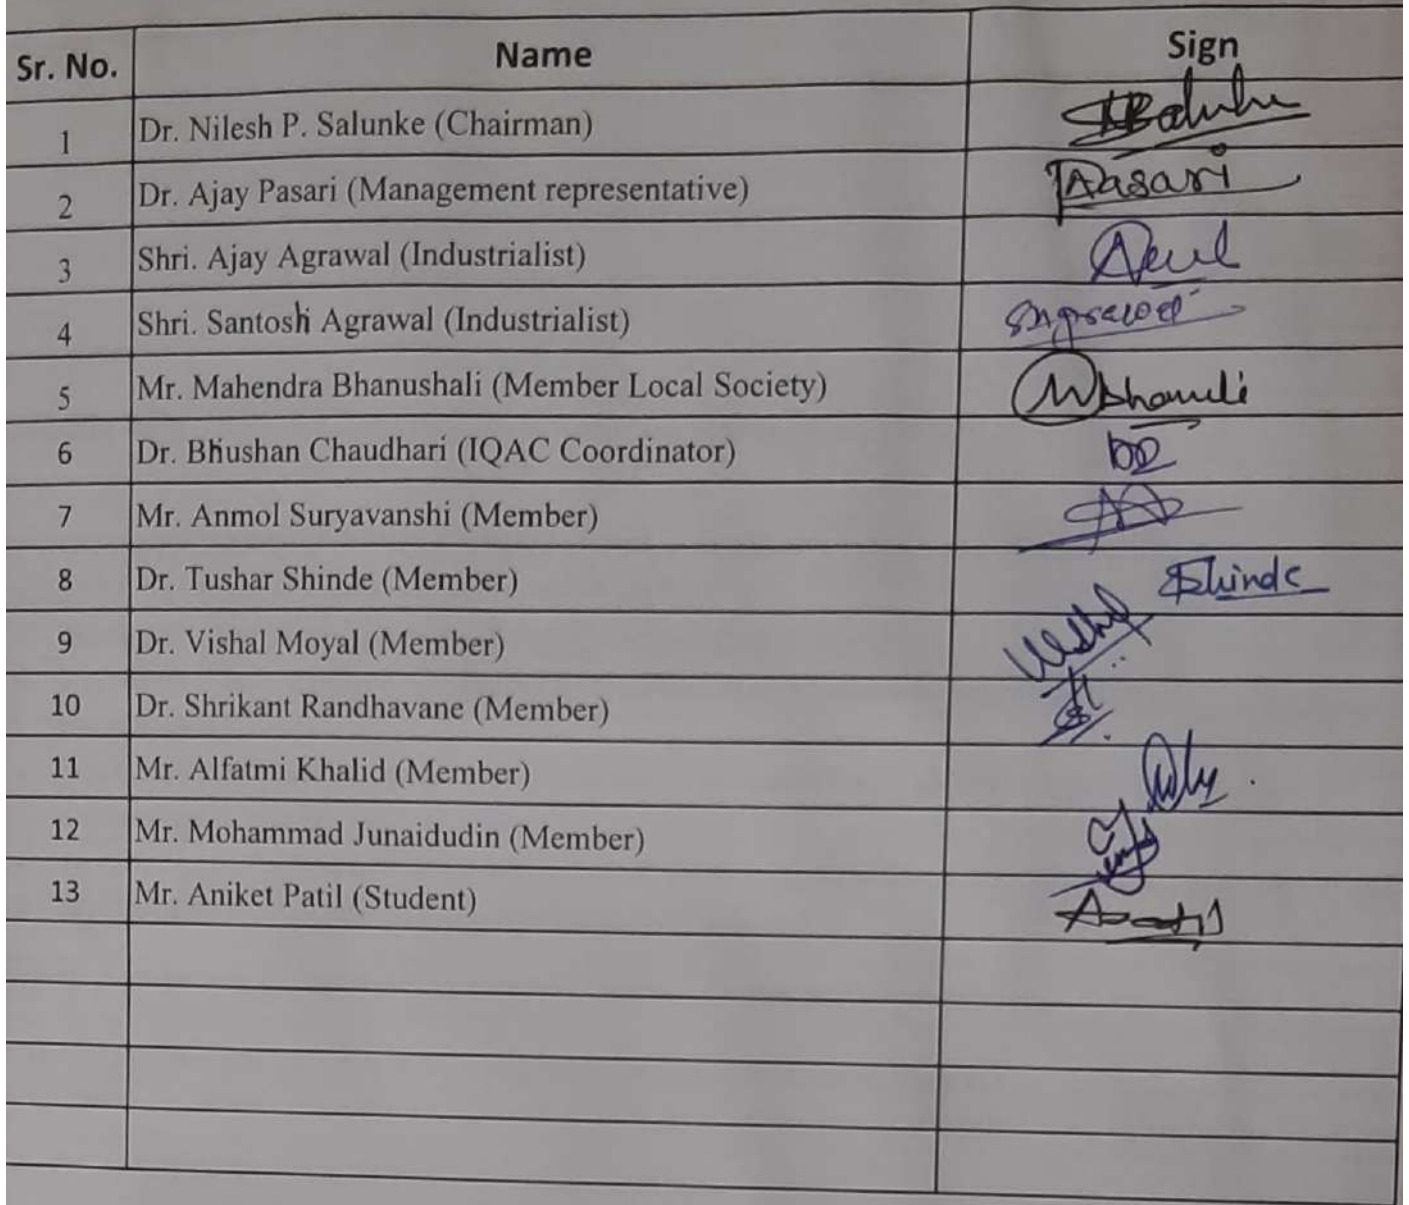 Sr. No. Name Sign
1 Dr. Nilesh P. Salunke (Chairman)
2 Dr. Ajay Pasari (Management representative) Pasari
3 Shri. Ajay Agrawal (Industrialist)
4 Shri. Santosh Agrawal (Industrialist)
5 Mr. Mahendra Bhanushali (Member Local Society)
6 Dr. Bhushan Chaudhari (IQAC Coordinator)
7 Mr. Anmol Suryavanshi (Member)
8 Dr. Tushar Shinde (Member) Shinde
9 Dr. Vishal Moyal (Member)
10 Dr. Shrikant Randhavane (Member)
11 Mr. Alfatmi Khalid (Member)
12 Mr. Mohammad Junaidudin (Member)
13 Mr. Aniket Patil (Student)